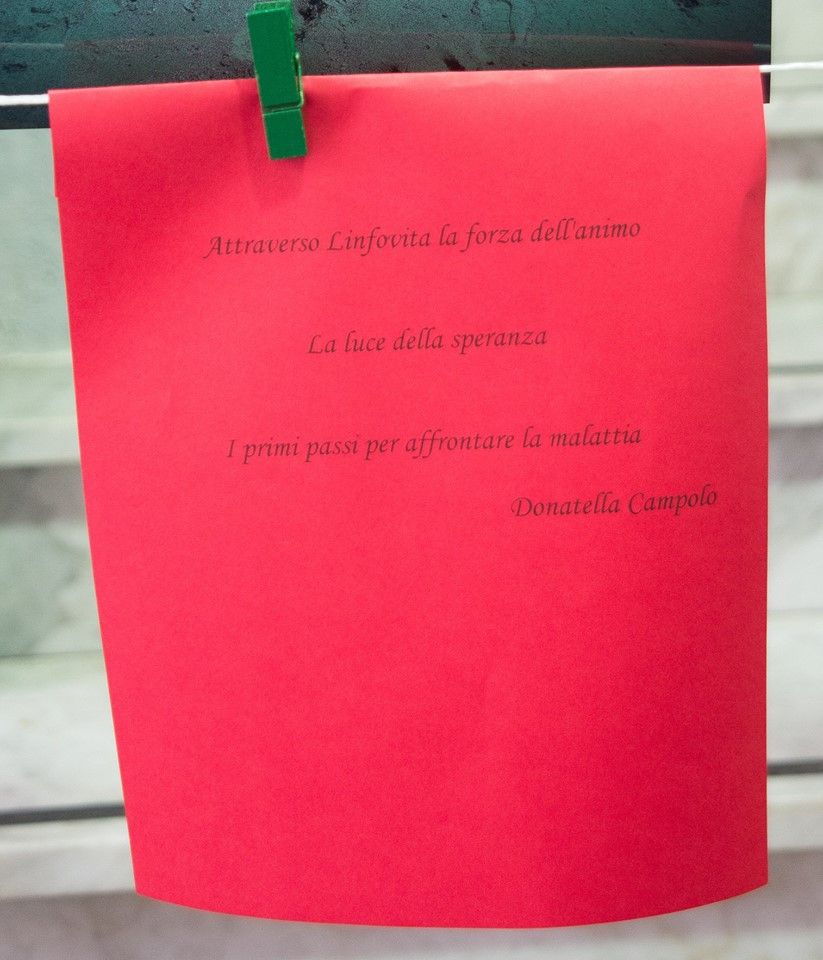 Attraverso Linfovita la forza dell'animo
La luce della speranza
I primi passi per affrontare la malattia
Donatella Campolo